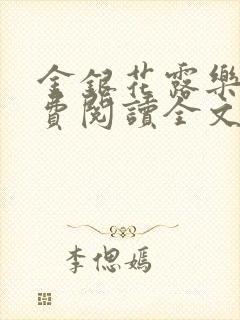 金銀花露樂
費閱讀全文
李偲嫣